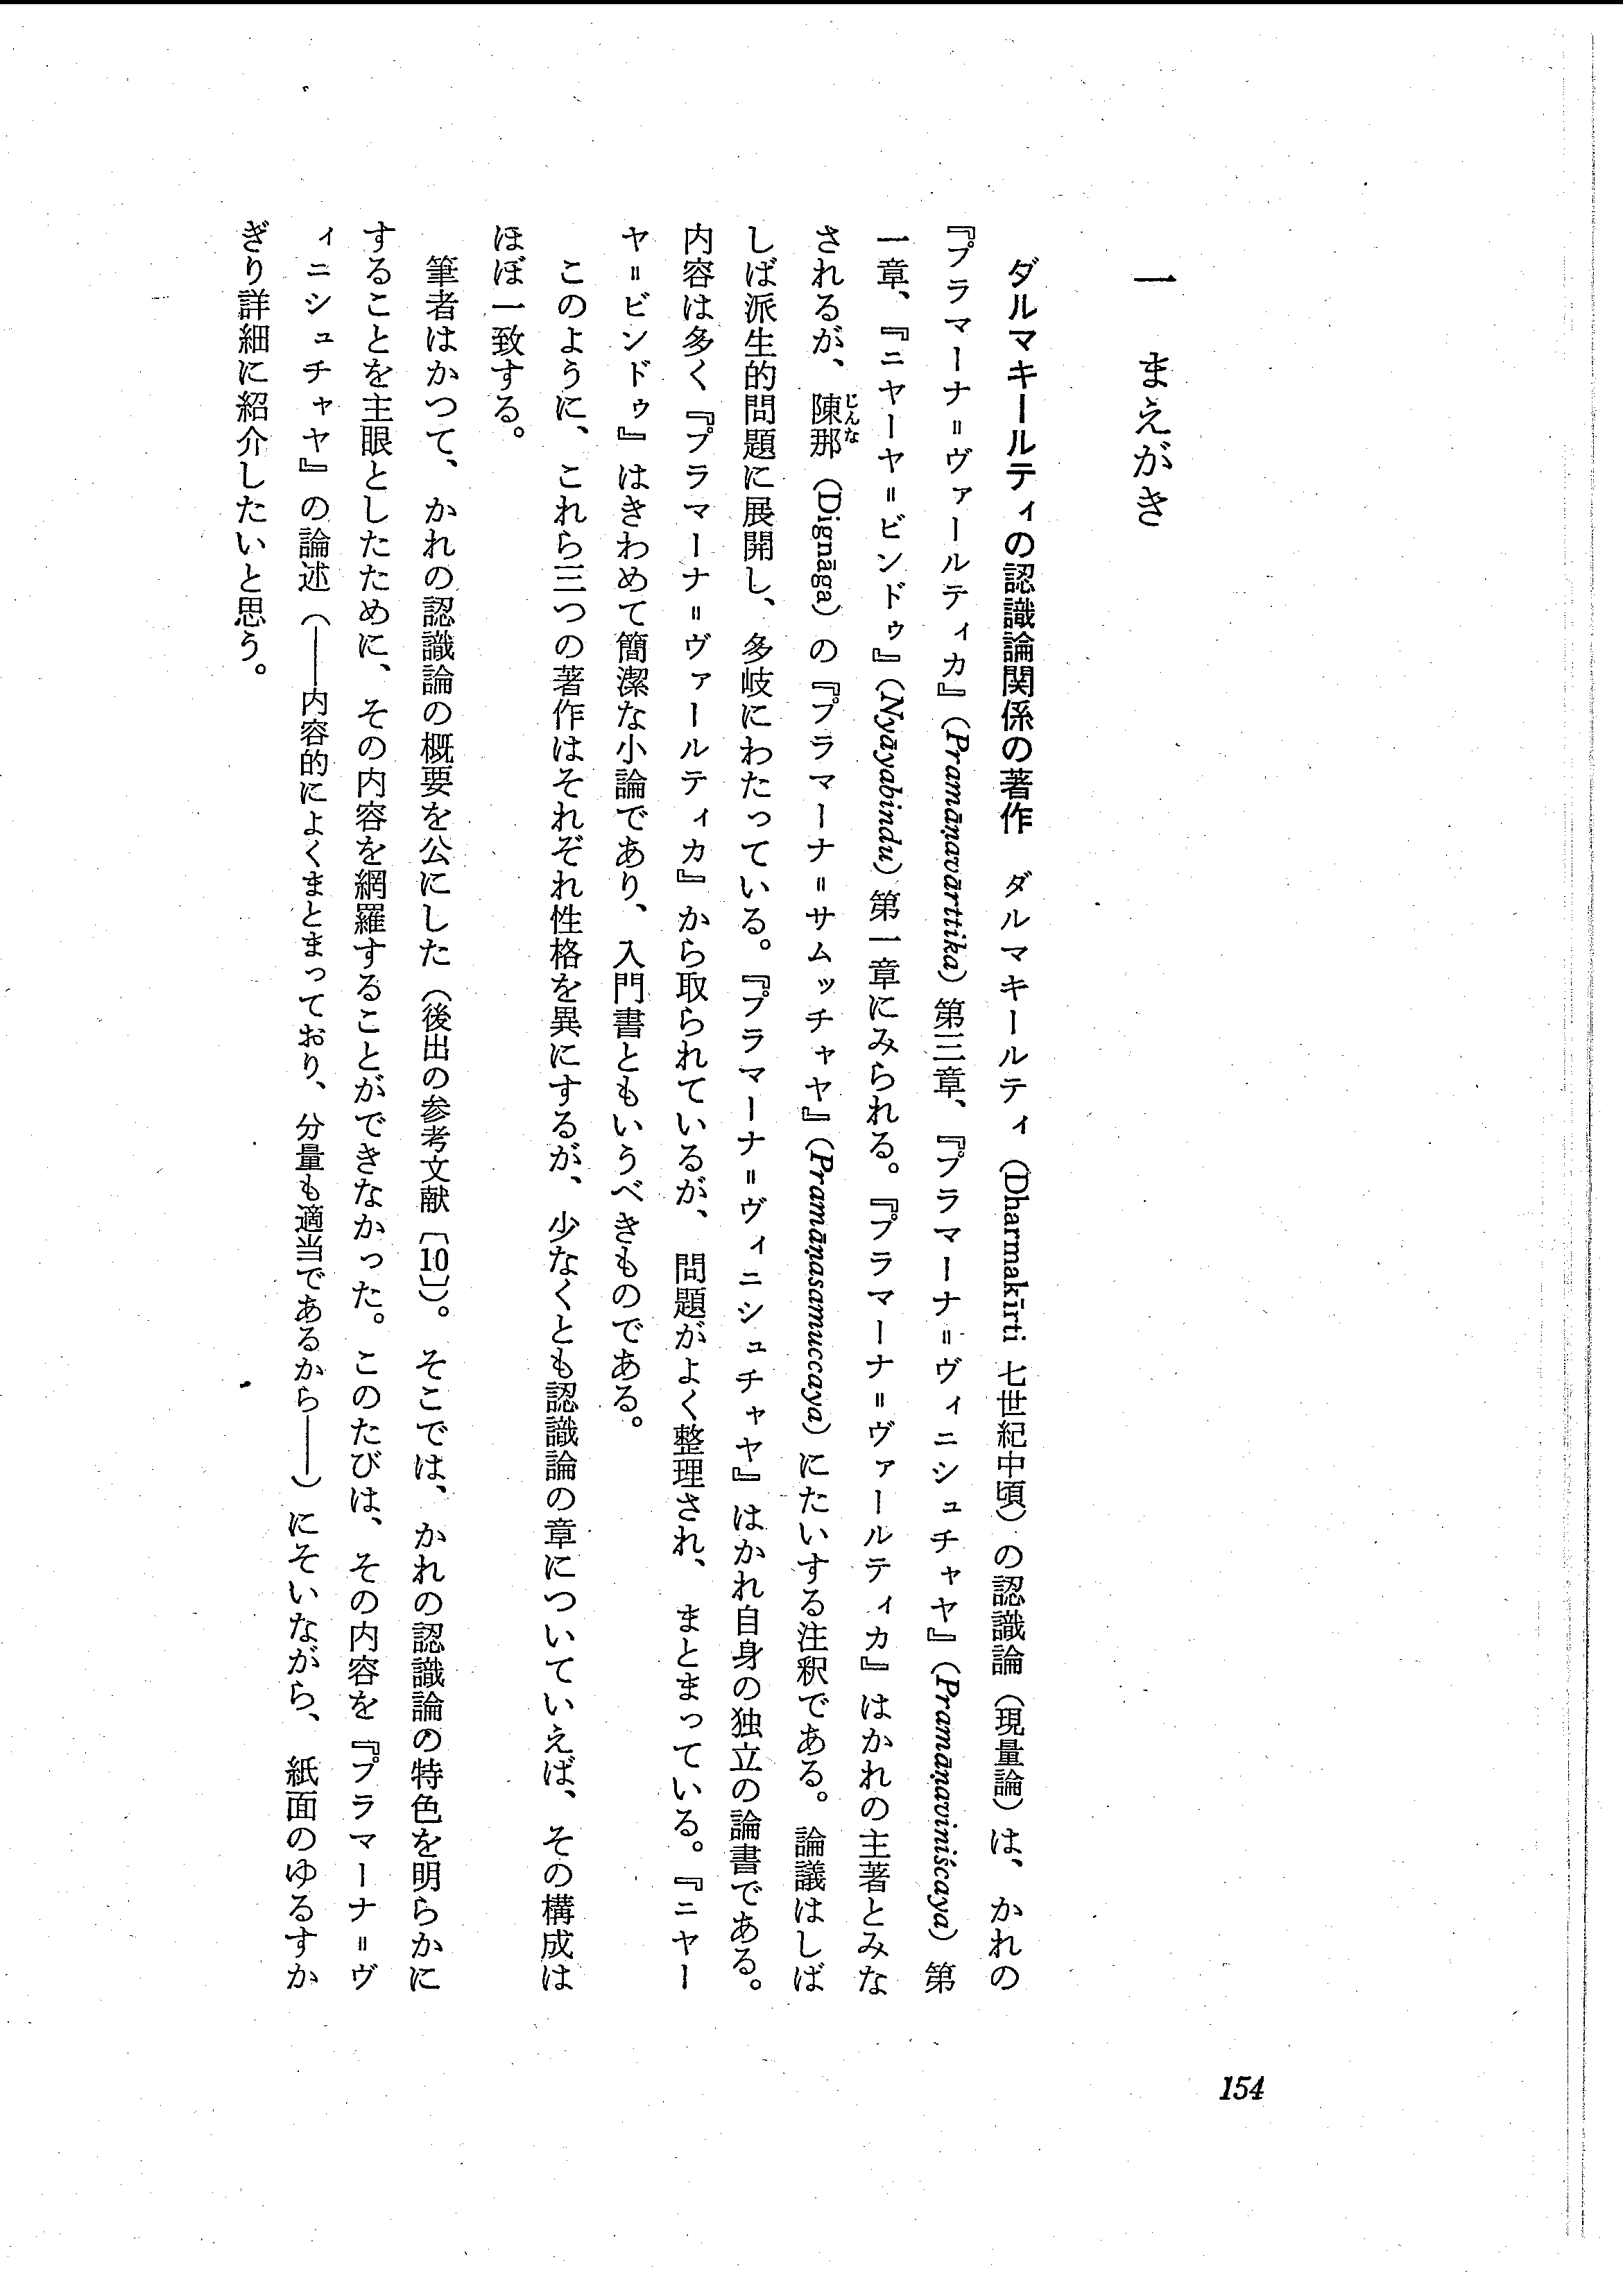 一　まえがき
ダルマキールティの認識論関係の著作　ダルマキールティ（Dharmakīrti 七世紀中頃）の認識論（現量論）は、かれの
『プラマーナ＝ヴァールティカ』（Pramāṇavārttika）第三章、『プラマーナ＝ヴィニシュチャヤ』（Pramāṇaviniścaya）第
一章、『ニヤーヤ＝ビンドゥ』（Nyāyabindu）第一章にみられる。『プラマーナ＝ヴァールティカ』はかれの主著とみな
されるが、陳那（じんな）（Dignāga）の『プラマーナ＝サムッチャヤ』（Pramāṇasamuccaya）にたいする注釈である。論議はしば
しば派生的問題に展開し、多岐にわたっている。『プラマーナ＝ヴィニシュチャヤ』はかれ自身の独立の論書である。
内容は多く『プラマーナ＝ヴァールティカ』から取られているが、問題がよく整理され、まとまっている。『ニヤー
ヤ＝ビンドゥ』はきわめて簡潔な小論であり、入門書ともいうべきものである。
このように、これら三つの著作はそれぞれ性格を異にするが、少なくとも認識論の章についていえば、その構成は
ほぼ一致する。
筆者はかつて、かれの認識論の概要を公にした（後出の参考文献〔10〕）。そこでは、かれの認識論の特色を明らかに
することを主眼としたために、その内容を網羅することができなかった。このたびは、その内容を『プラマーナ＝ヴ
ィニシュチャヤ』の論述（――内容的によくまとまっており、分量も適当であるから――）にそいながら、紙面のゆるすか
ぎり詳細に紹介したいと思う。
154